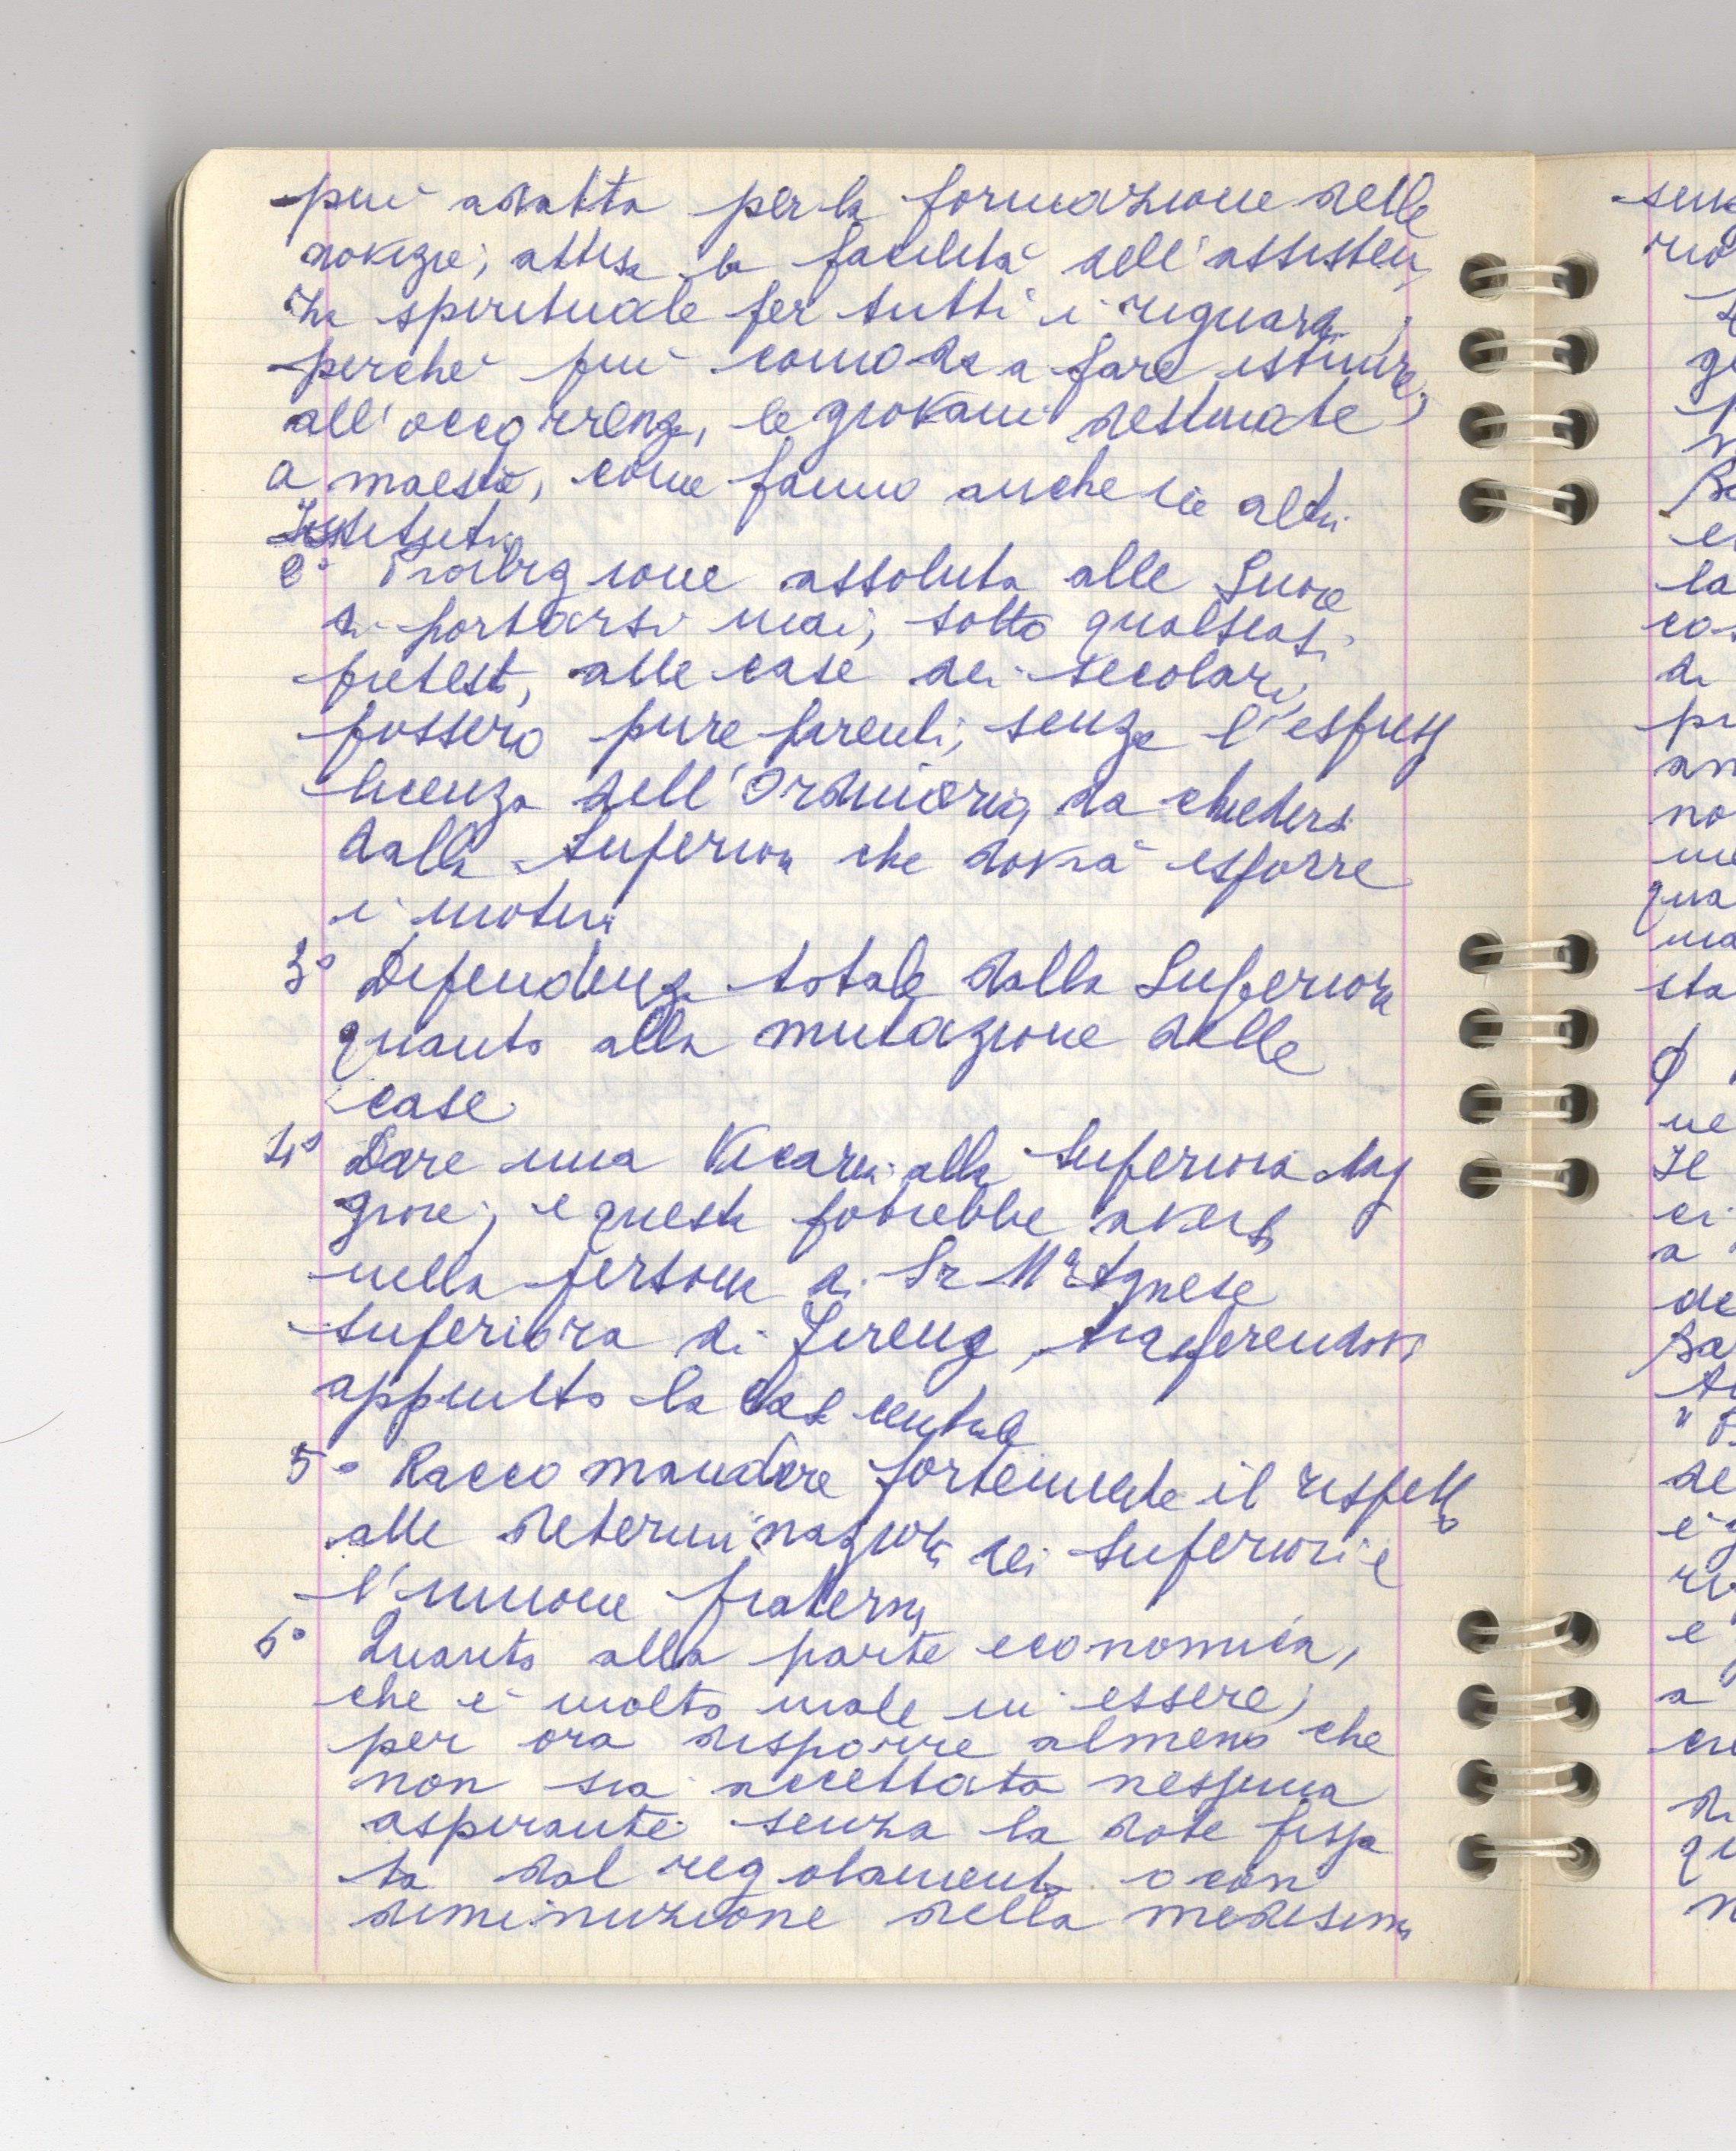 più adatta per la formazione delle
novizie; attesa la facilità dell'assisten
za spirituale per tutti i riguardi;
perché più comoda a fare istruire,
all'occorrenza, le giovani destinate
a maestre, come fanno anche le altri
Istituti.
2° Proibizione assoluta alle Suore
di portarsi mai, sotto qualsiasi
pretesto, alle case dei secolari,
fossero pure parenti, senza l'espressa
licenza dell'Ordinario, da chiedersi
dalla Superiora che dovrà esporre
i motivi
3° Dipendenza totale dalla Superiora
quanto alla mutazione delle
case
4° Dare una Vicaria alla Superiora Mag
giore; e questa potrebbe aversi
nella persona di Sr Mª Agnese
superiora di Firenze, trasferendovi
appunto la Casa centrale
5° Raccomandare fortemente il rispetto
alle determinazioni dei Superiori e
l'unione fraterna
6° Quanto alla parte economica,
che è molto male in essere,
per ora disporre almeno che
non sia accettata nessuna
aspirante senza la dote fissa
ta dal regolamento o con
diminuzione della medesima
senz
rio
ge
la
cos
di
pu
an
no
me
qua
ma
sta
ne
Il
ci
a
de
Ba
de
e
a
di
qu